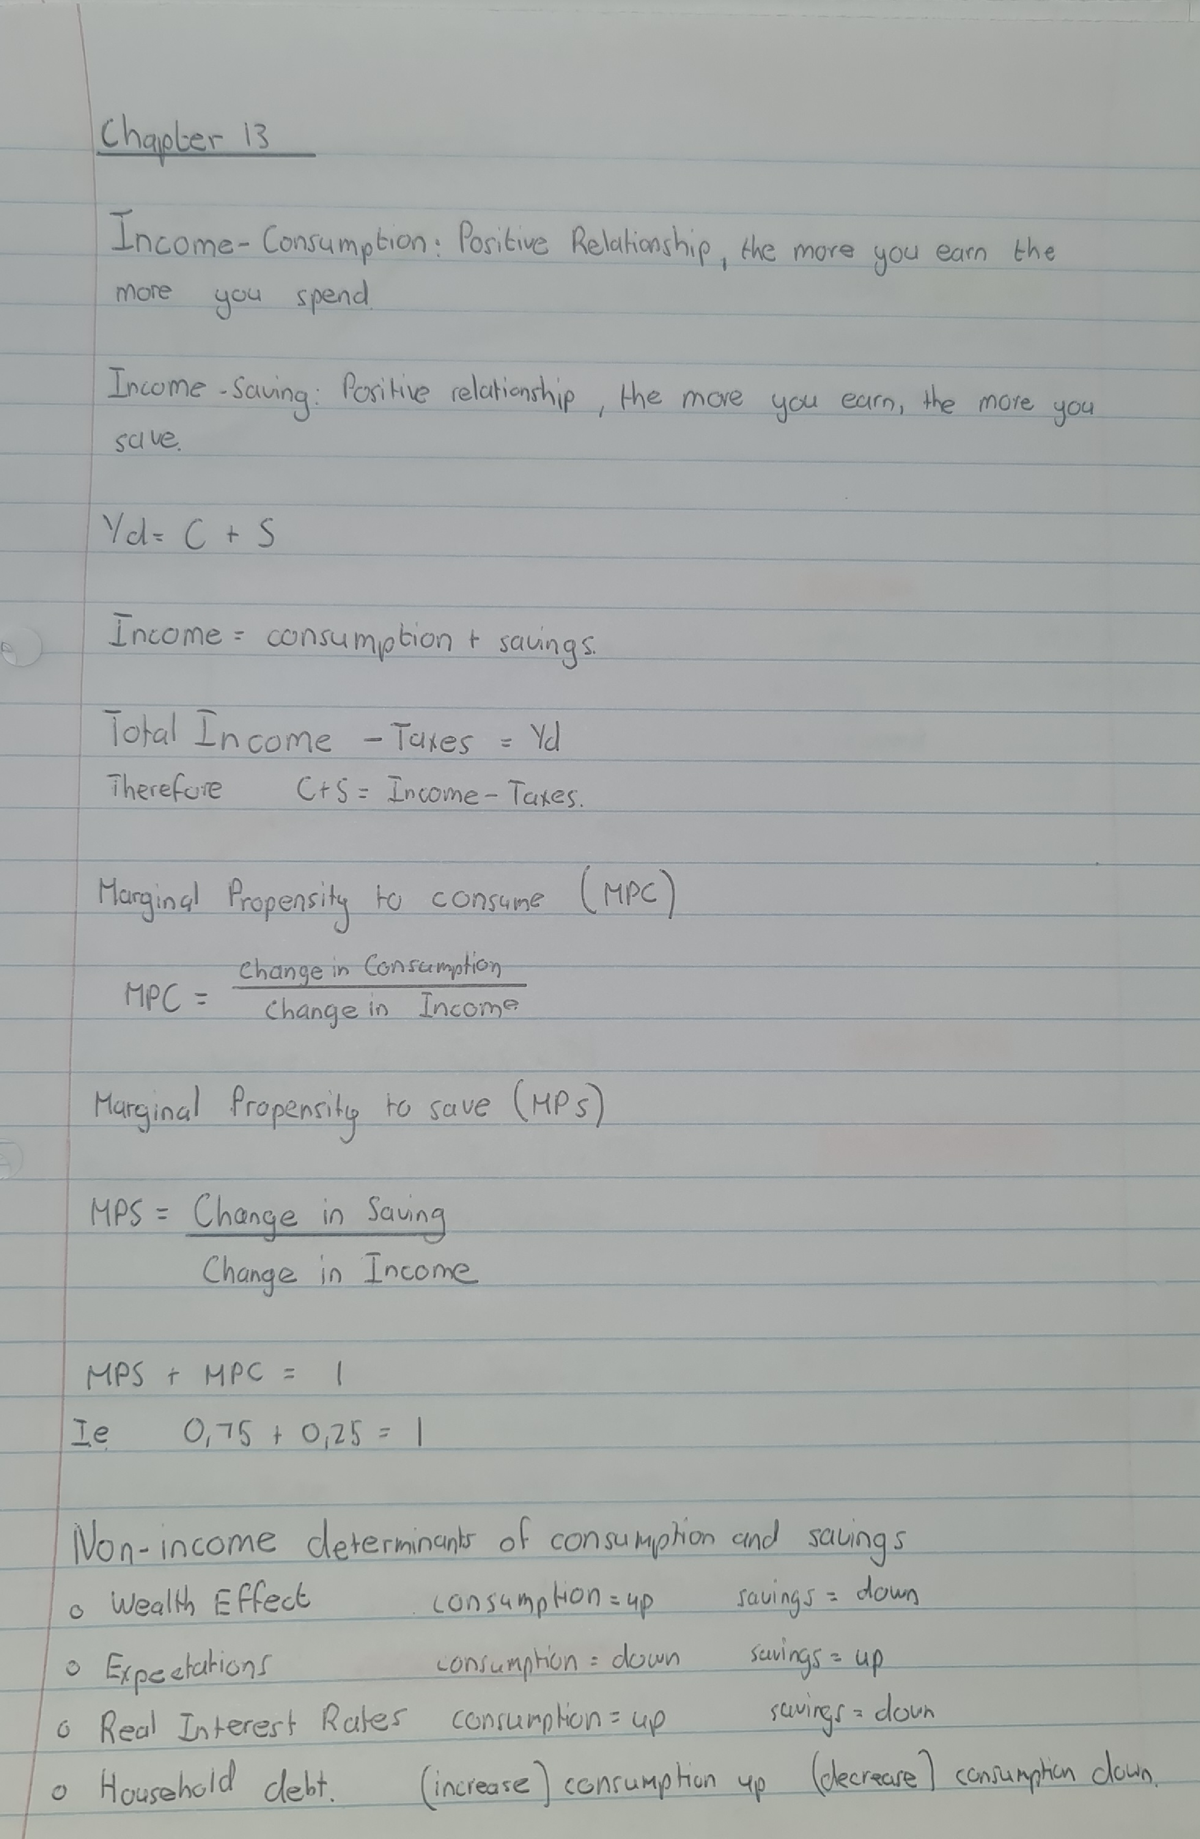 Chapter 13
Income-Consumption: Positive Relationship, the more you earn the
more you spend.
Income-Saving: Positive relationship, the more you earn, the more you
save.
Yd= C + S
Income = consumption + savings.
Total Income - Taxes = Yd
Therefore C+S = Income - Taxes.
Marginal Propensity to consume (MPC)
MPC = Change in Consumption
Change in Income
Marginal Propensity to save (MPS)
MPS = Change in Saving
Change in Income
MPS + MPC = 1
Ie 0,75 + 0,25 = 1
Non-income determinants of consumption and savings
o Wealth Effect consumption = up savings = down
o Expectations consumption = down savings = up
o Real Interest Rates consumption = up savings = down
o Household debt. (increase) consumption up (decrease) consumption down.